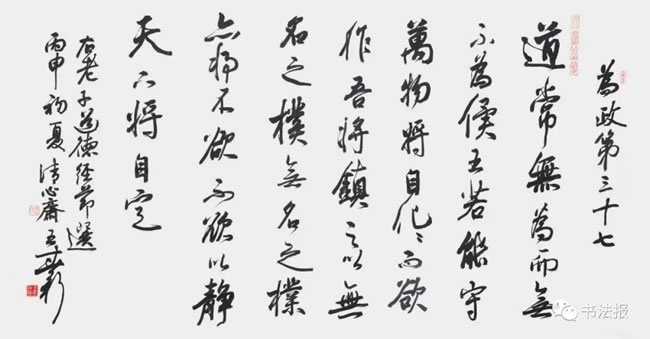 為政第三十七
道常無為而無
不為侯王若能守
萬物將自化〻而欲
作吾將鎮之以無
名之樸無名之樸
亦將不欲不欲以静
天下將自定
右老子道德经節選
丙申初夏清心齋王
书法报